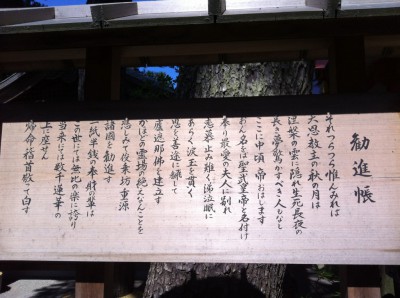 勧進帳
それつらつら惟んみれば
大恩教主の秋の月は
涅槃の雲に隠れ生死長夜の
長き夢驚かすべき人もなし
ここに中頃の帝おはします
おん名をば聖武皇帝と名付け
奉り最愛の夫人に別れ
恋慕止み難く涕泣眼に
あらく涙玉を貫く
思を善途に翻して
盧遮那佛を建立す
かほどの霊場の絶えなんことを
悲しみて俊乗坊重源
諸國を勧進す
一紙半銭の奉財の輩は
この世にては無比の楽に誇り
当来にては数千蓮華の
上に座せん
帰命稽首敬って白す